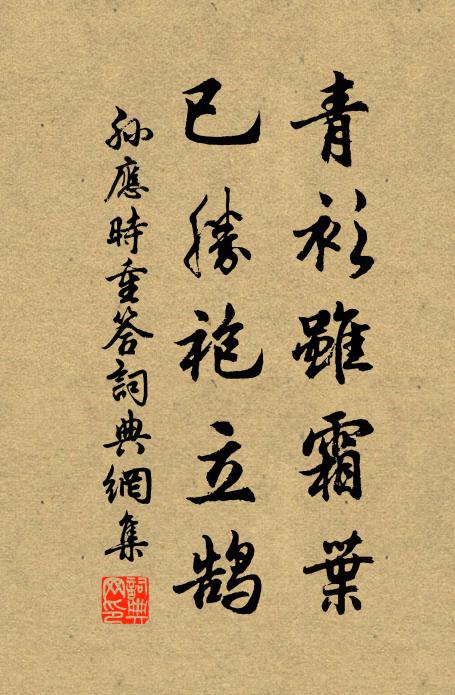 青衫雖霜葉
已勝袍立鵠
孫應時重答詞典網集
詞典網印